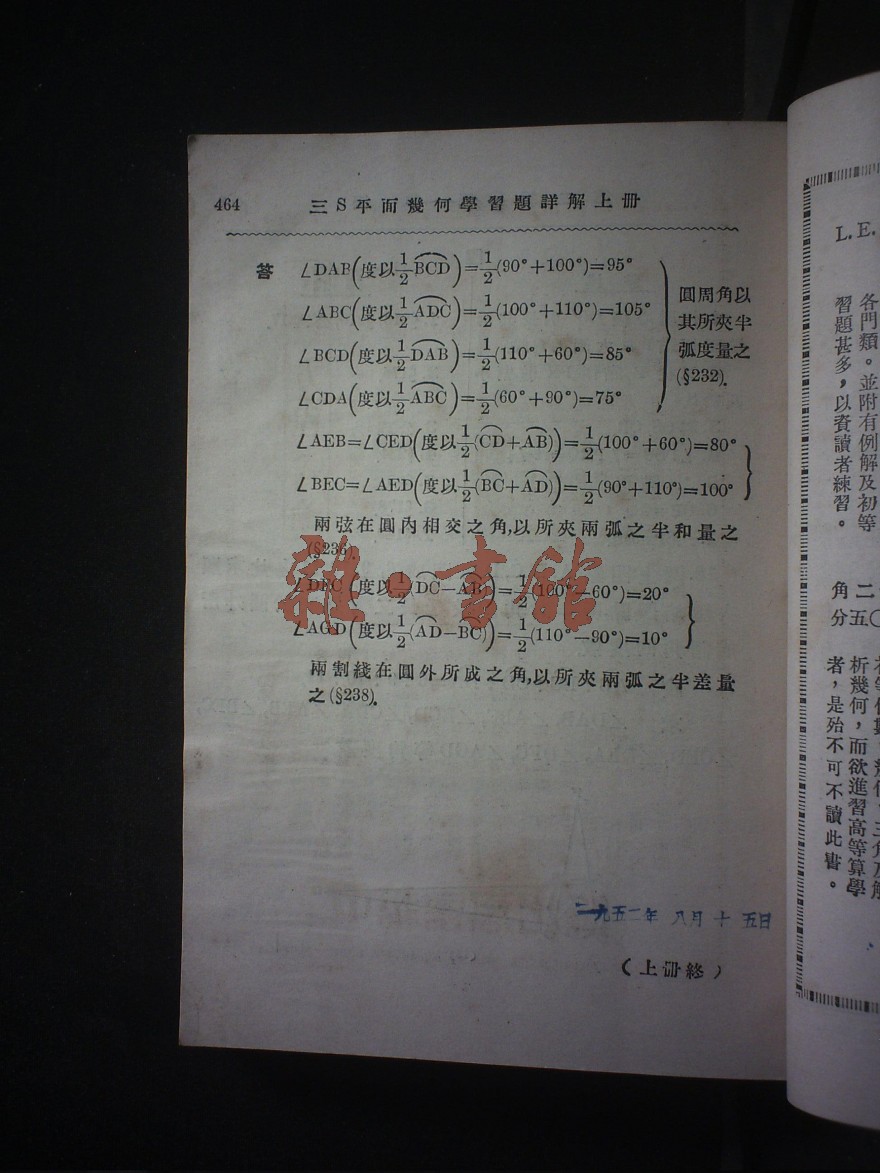 464 三S平面幾何學習題詳解上冊
答 ∠DAB(度以1/2 BCD)=1/2(90°+100°)=95°
∠ABC(度以1/2 ADC)=1/2(100°+110°)=105°
∠BCD(度以1/2 DAB)=1/2(110°+60°)=85°
∠CDA(度以1/2 ABC)=1/2(60°+90°)=75°
圓周角以
其所夾半
弧度量之
(§232).
∠AEB=∠CED(度以1/2(CD+AB))=1/2(100°+60°)=80°
∠BEC=∠AED(度以1/2(BC+AD))=1/2(90°+110°)=100°
兩弦在圓內相交之角,以所夾兩弧之半和量之
(§236).
∠DFC(度以1/2(DC−AB))=1/2(100°−60°)=20°
∠AGD(度以1/2(AD−BC))=1/2(110°−90°)=10°
兩割綫在圓外所成之角,以所夾兩弧之半差量
之(§238).
雜·書館
一九五二年 八月十五日
(上冊終)
L.E.
各門類。並附有例解及初等
習題甚多,以資讀者練習。
角二
分五〇
析幾何,而欲進習高等算學
者,是殆不可不讀此書。